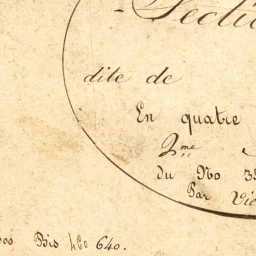 Section
dite de
En quatre
2me
du No
Par
Bis No 640.